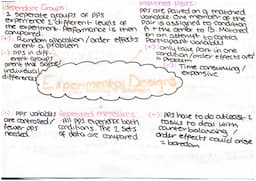 Independent Groups:
2 seperate groups of PPS
experience 2 different levels of
the experiment. Performance is then
compared
(+) Random allocation / order effects
arent a problem
(-) PPS in diff-
erent groups
individual
differences
Matched Pairs:
PPS are paired on a matched
variable. One member of the
pair is assigned to condition
A + the other to B. Matched
on an attempt to control
Participant variables
(+) only take part in one
condition / order effects arent
a problem
(-) Time consuming /
expensive
Experimental Designs
(+) PPT variables
are controlled /
fewer PPS
needed
Repeated measures:
All PPS experience both
conditions. The 2 sets
of data are compared
(-) PPS have to do atleast 2
tasks to deal with
counter balancing /
order effects could arise
= boredom